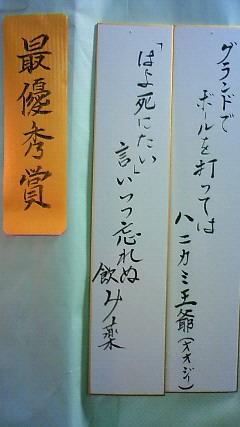 グランドで
ボールを打っては
ハニカミ王爺(オオジィ)
「はよ死にたい」
言いつつ忘れぬ
飲み薬
最優秀賞